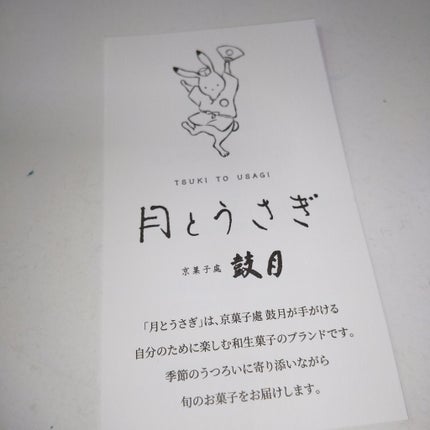 TSUKI TO USAGI
月とうさぎ
京菓子處 鼓月
「月とうさぎ」は、京菓子處 鼓月が手がける
自分のために楽しむ和生菓子のブランドです。
季節のうつろいに寄り添いながら
旬のお菓子をお届けします。